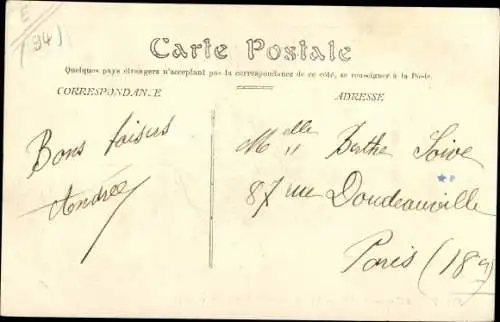 E
(94)
Carte Postale
Quelques pays étrangers n'acceptant pas la correspondance de ce côté, se renseigner à la Poste.
CORRESPONDANCE
ADRESSE
Bons baisers
Andrée
Melle Berthe Soive
87 rue Doudeauville
Paris (18e)